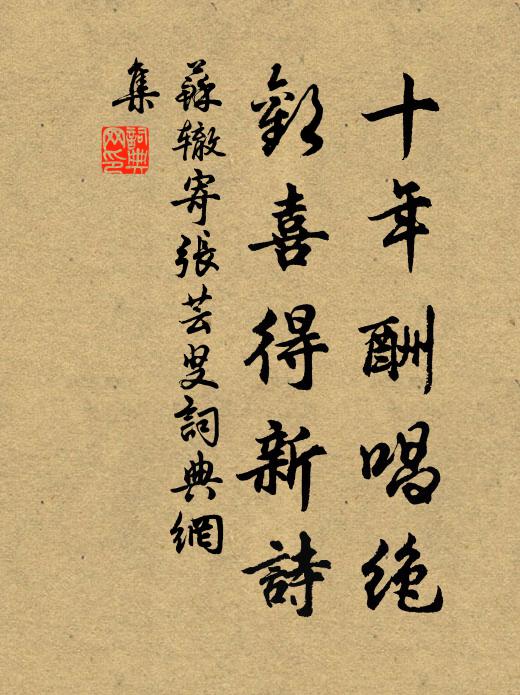 十年酬唱绝
歡喜得新詩
蘇辙寄張芸叟詞典網
集
詞典网印